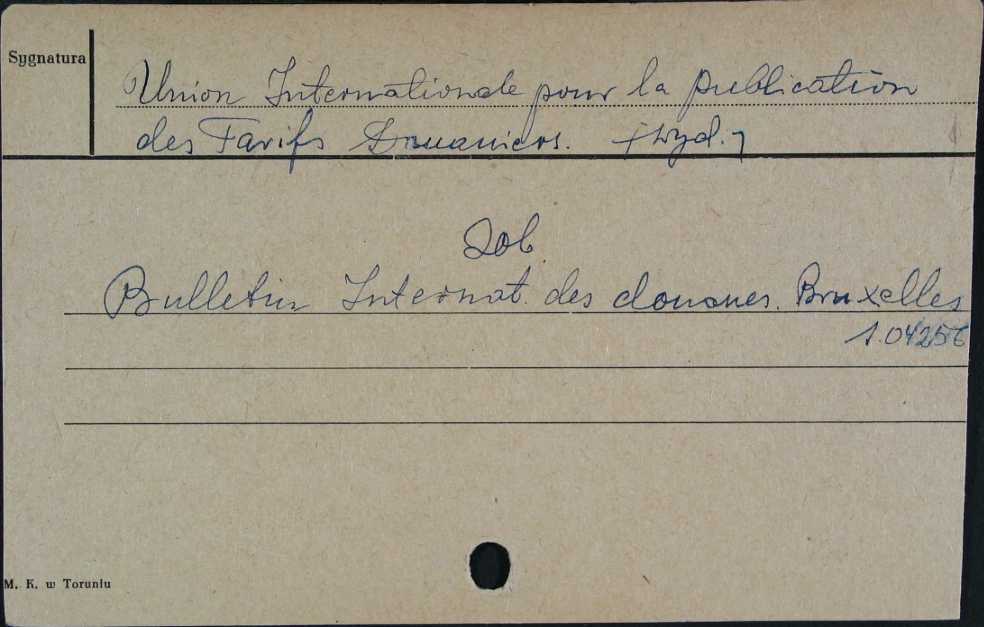 Sygnatura
Union Internationale pour la publication
des Tarifs Douaniers. [wyd.]
Zob
Bulletin Internat. des douanes. Bruxelles
1.04256
M. K. w Toruniu